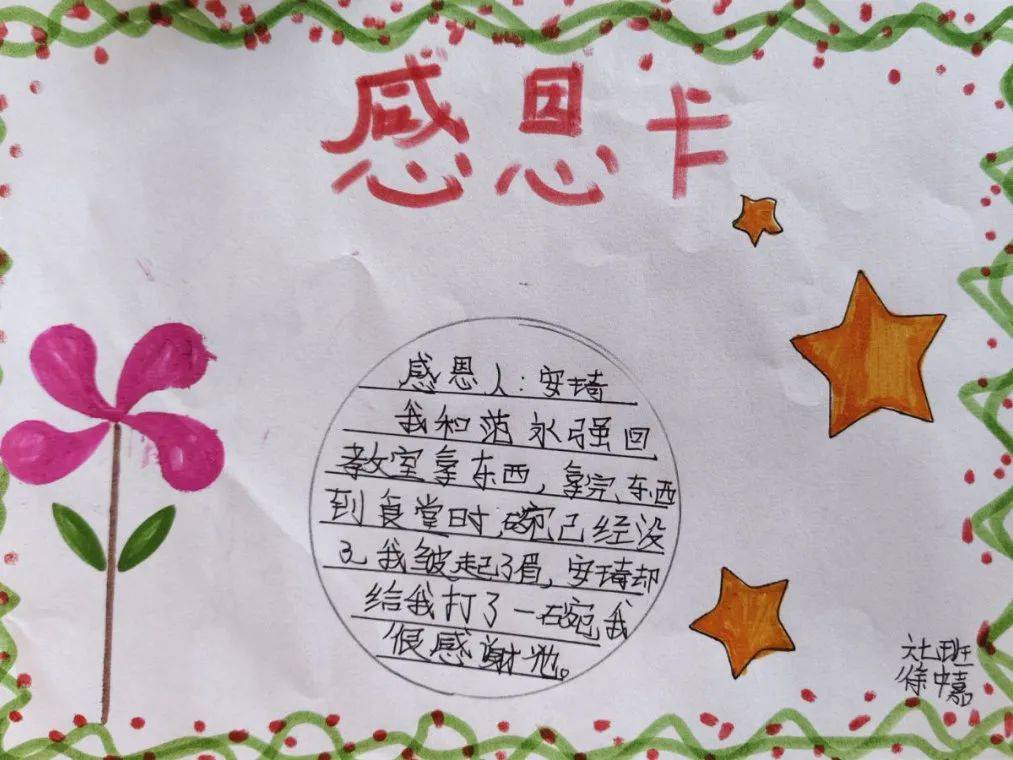 感恩卡
感恩人：安琦
我和范永强回
教室拿东西，拿完东西
到食堂时，碗已经没
了，我皱起了眉，安琦却
给我打了一碗，我
很感谢他。
班
徐中嘉